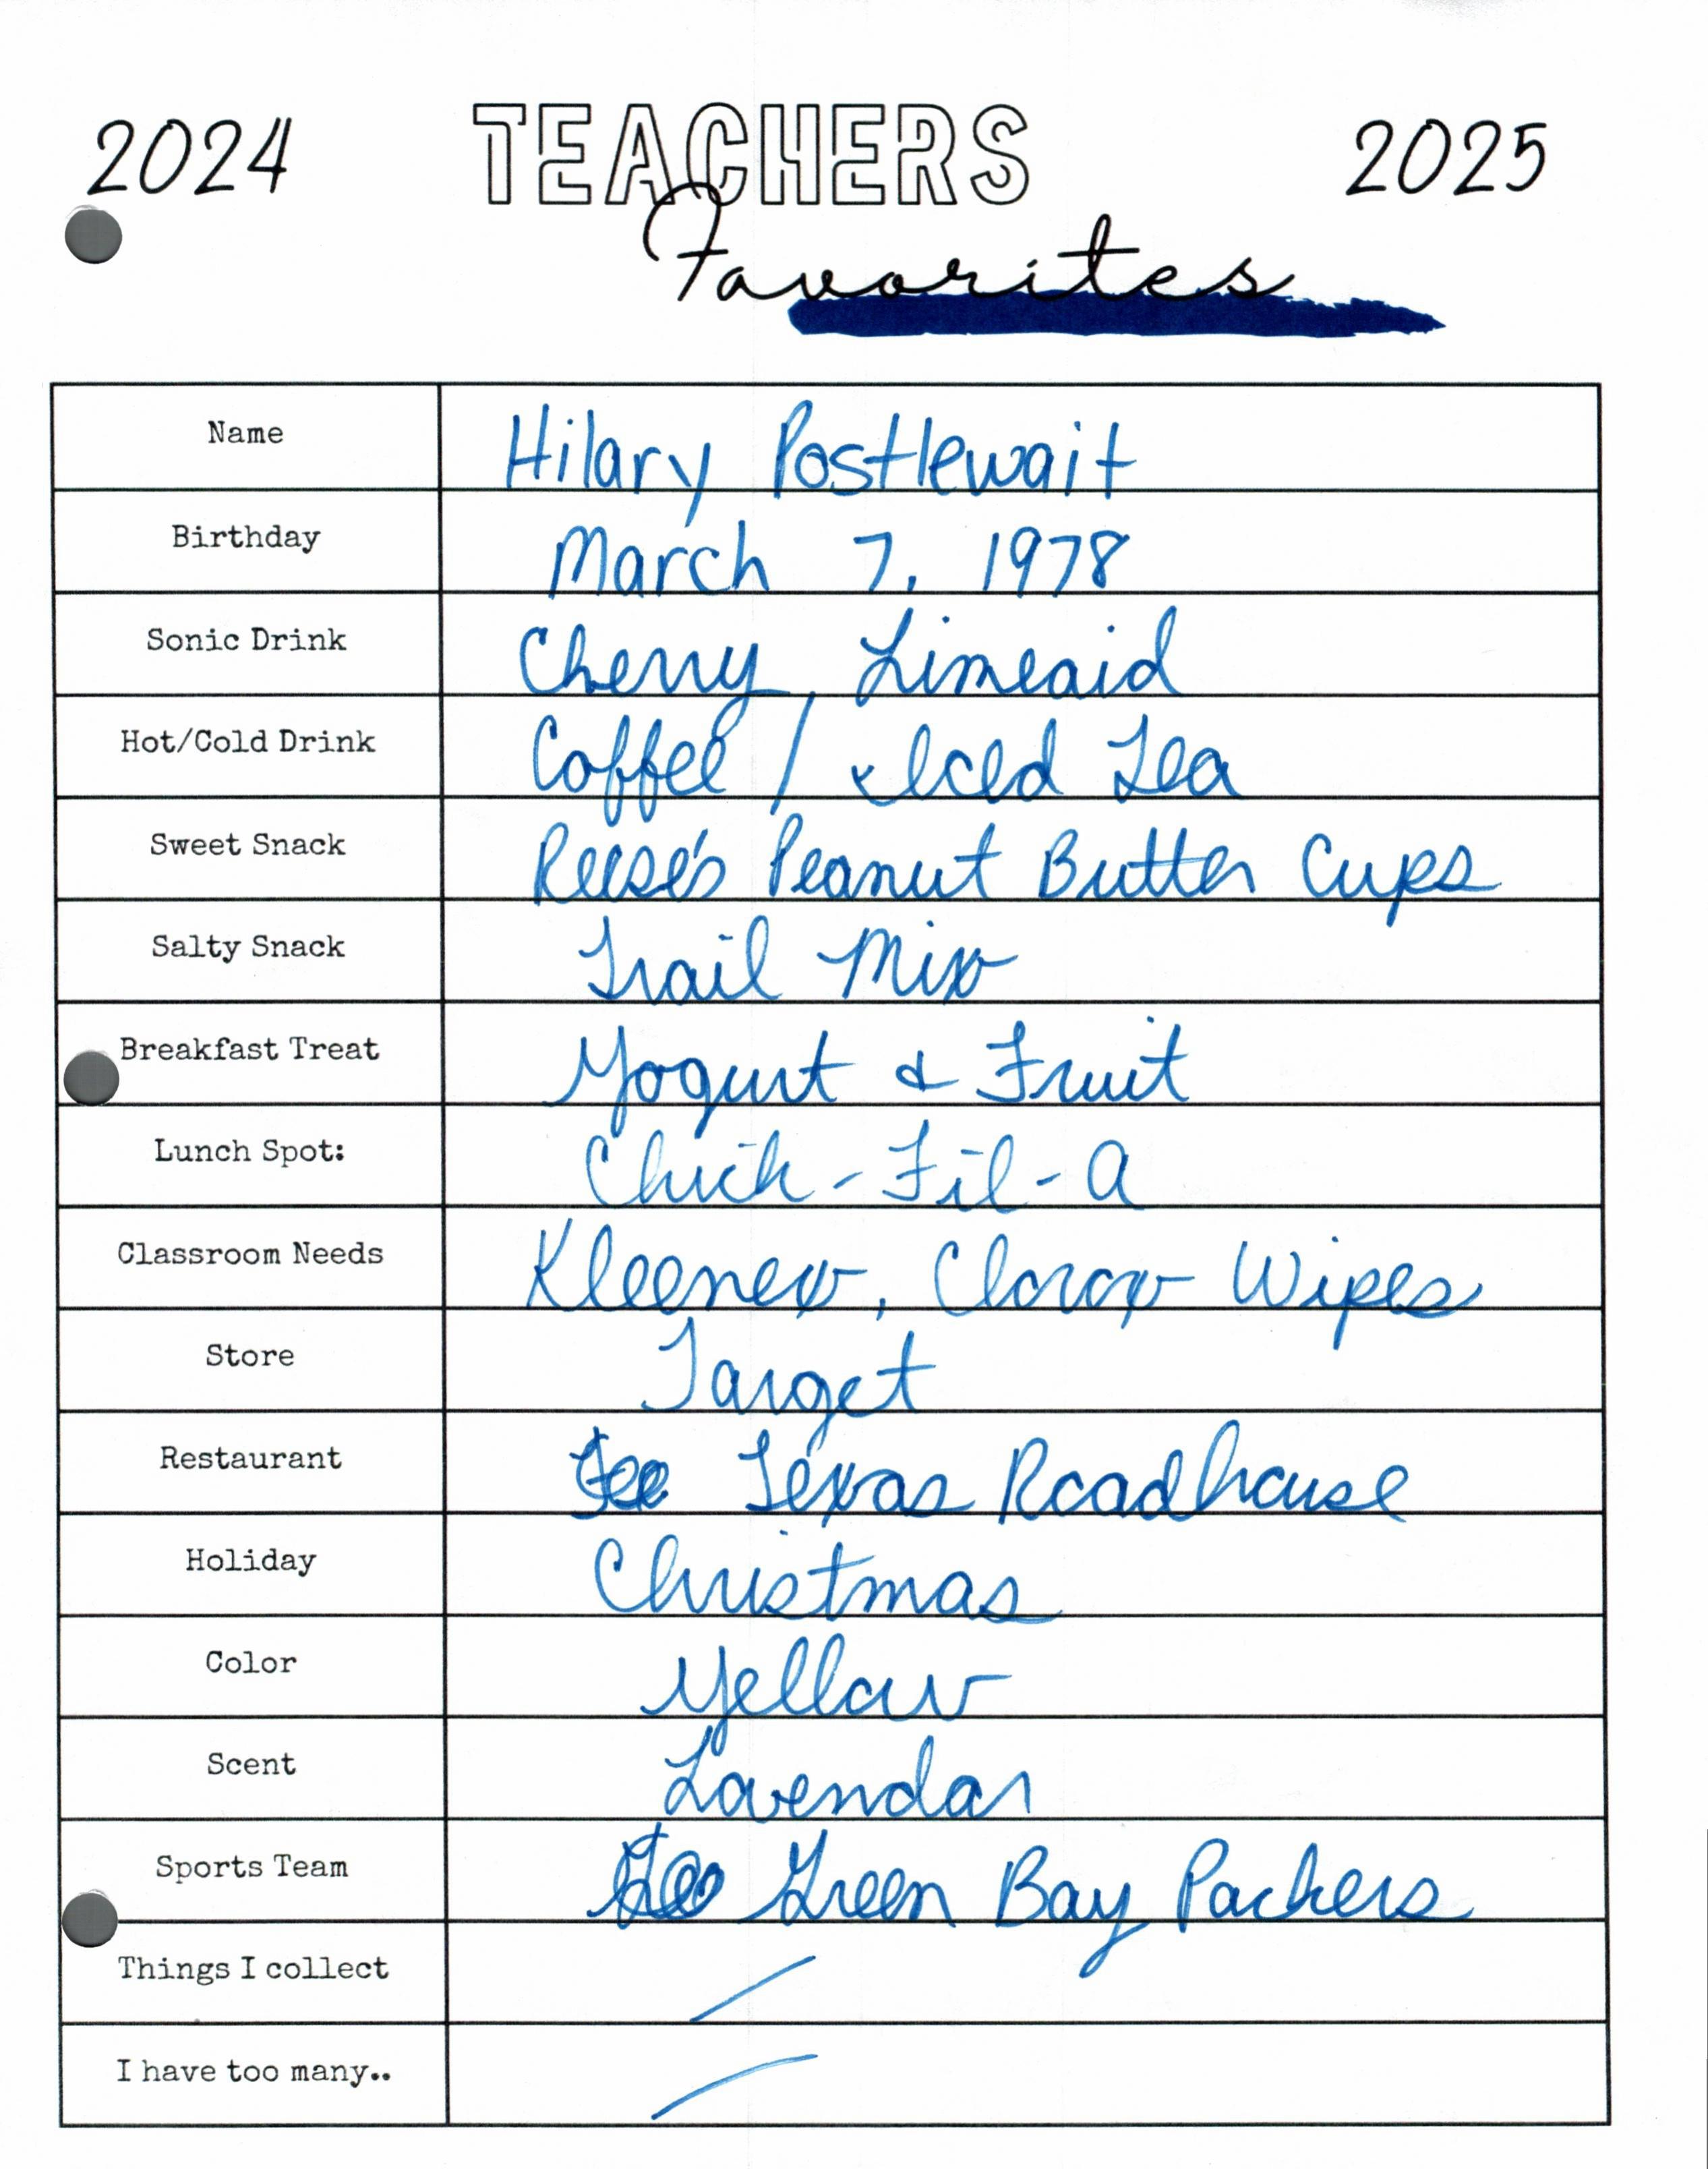 2024 TEACHERS 2025
Favorites
Name Hilary Postlewait
Birthday March 7, 1978
Sonic Drink Cherry Limeaid
Hot/Cold Drink Coffee / Iced Tea
Sweet Snack Reese's Peanut Butter Cups
Salty Snack Trail Mix
Breakfast Treat Yogurt & Fruit
Lunch Spot: Chick-Fil-A
Classroom Needs Kleenex, Clorox Wipes
Store Target
Restaurant Texas Roadhouse
Holiday Christmas
Color Yellow
Scent Lavendar
Sports Team Green Bay Packers
Things I collect
I have too many..